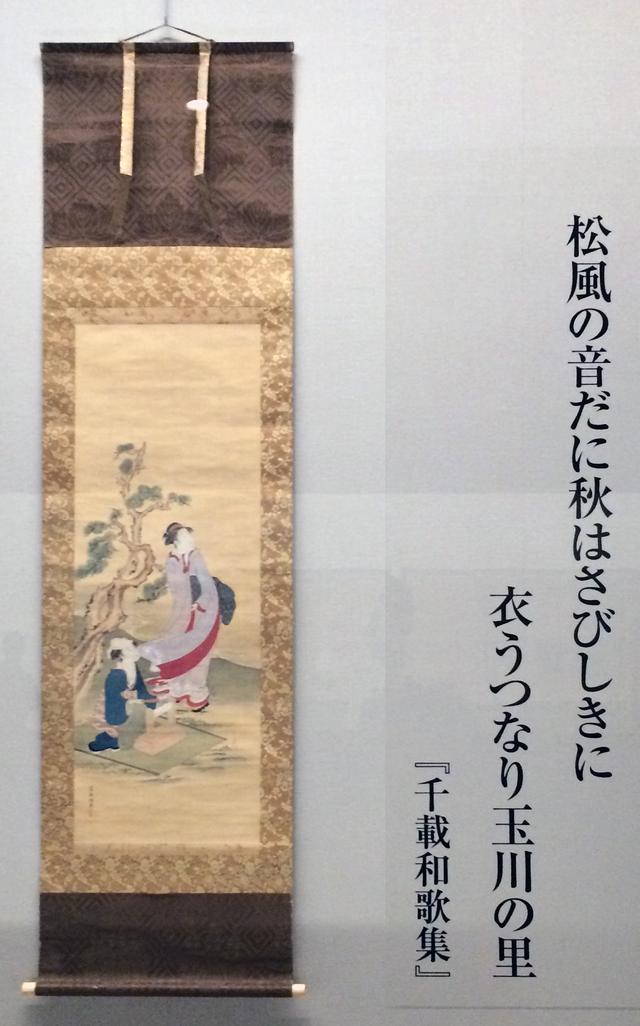 松風の音だに秋はさびしきに
衣うつなり玉川の里
『千載和歌集』